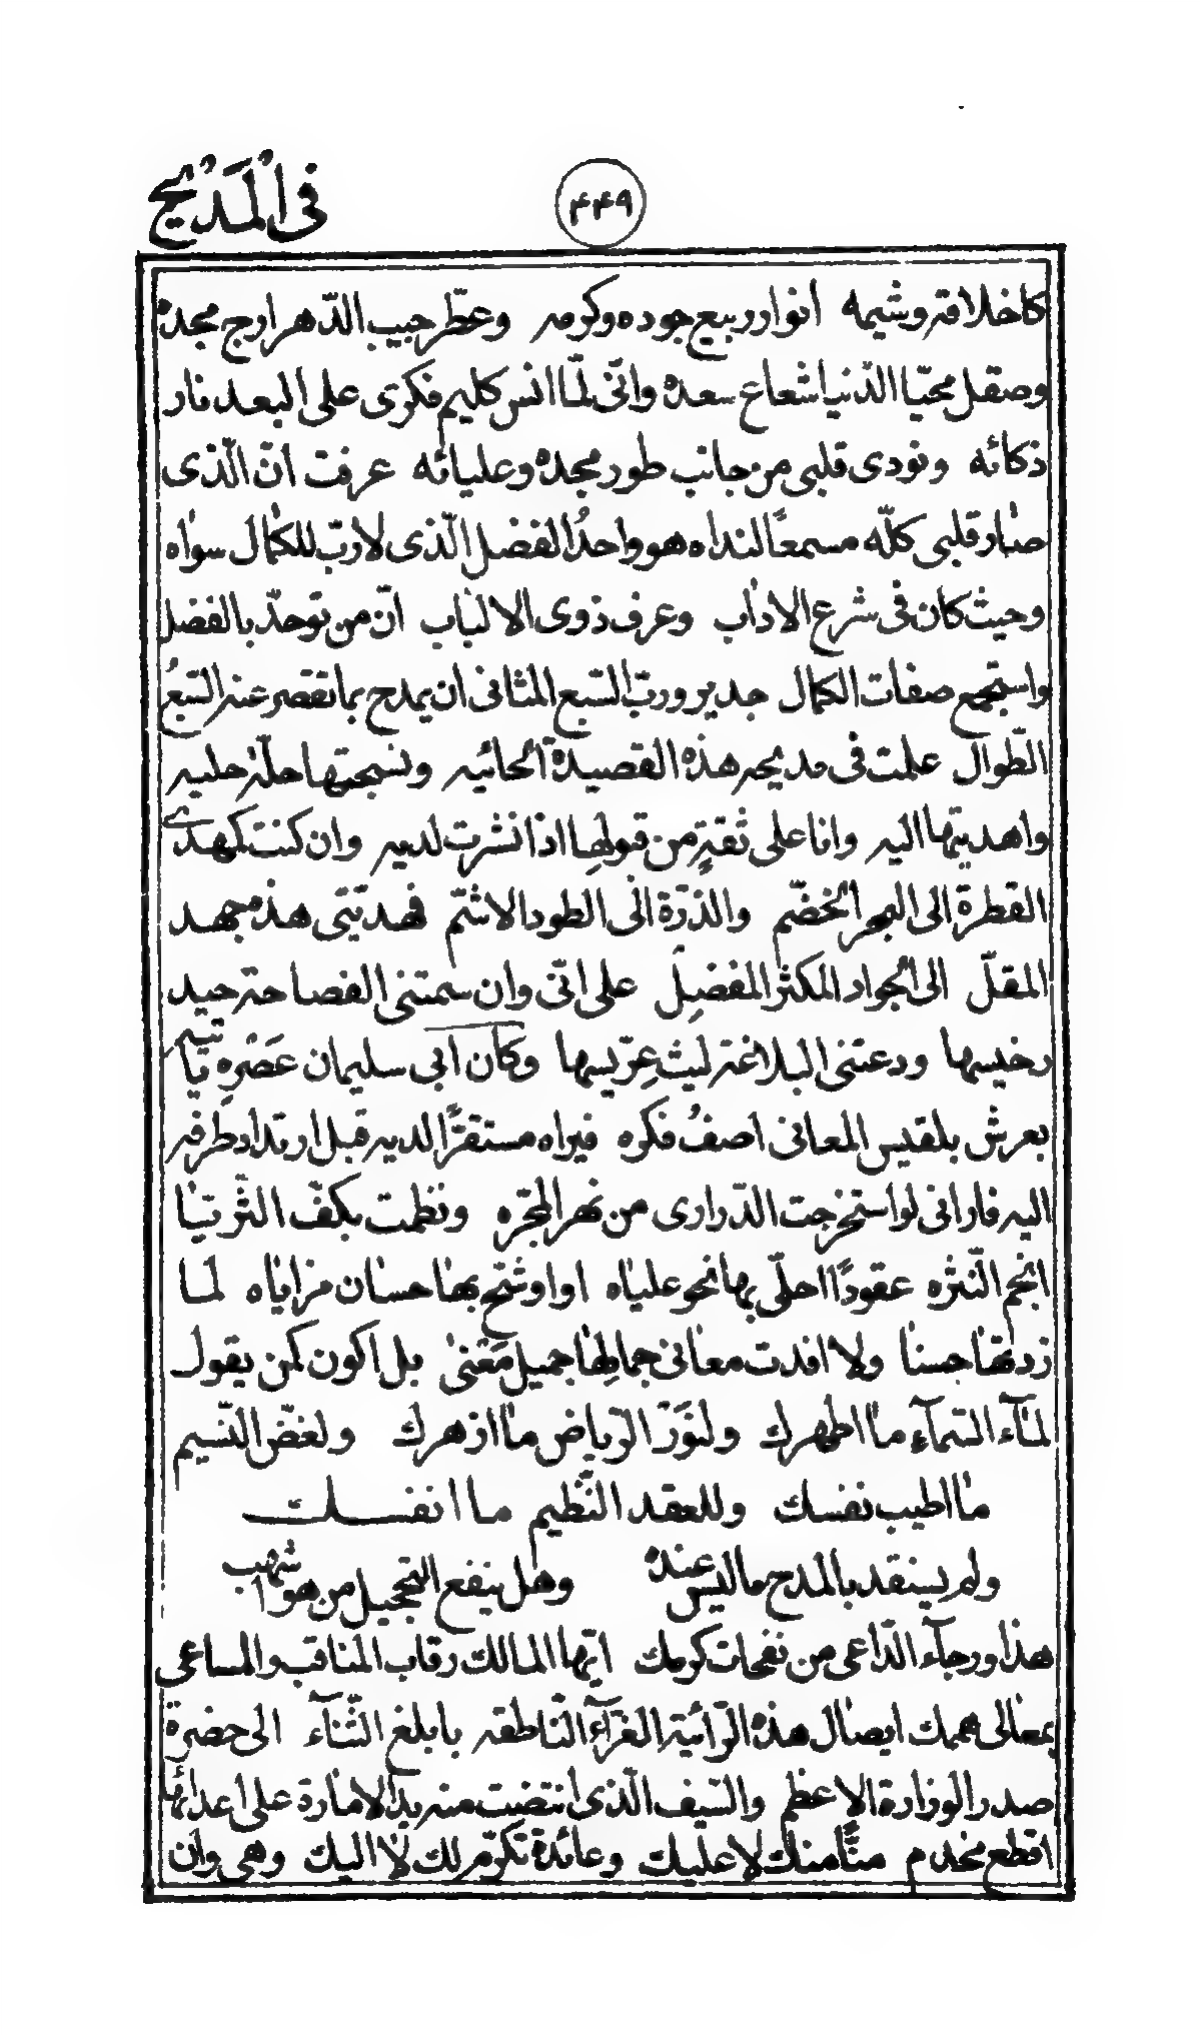 فى الْمَدْيح
٤٤٩
كاخلاقه وشيمه انوار ربيع جوده وكرمه وعطّر جيب الدّهر ارج مجده
وصقل محيّا الدّنيا شعاع سعده وانّى لمّا انس كليم فكرى على البعد نار
ذكائه ونودى قلبى من جانب طور مجده وعليائه عرفت انّ الّذى
صار قلبى كلّه مسمعًا لنداه هو واحدُ الفضل الّذى لا ربّ للكمال سواه
وحيث كان فى شرع الاداب وعرف ذوى الالباب انّ من توحّد بالفضل
واستجمع صفات الكمال جدير وربّ السّبع المثانى ان يمدح بما تقصر عنه السّبعُ
الطّوال علمت فى مديحه هذه القصيدة الحائيه ونسجتها حلّة حليه
واهديتها اليه وانا على ثقةٍ من قبولها اذا نشرت لديه وان كنت كمهدى
القطرة الى البحر الخضمّ والذرّة الى الطود الاشمّ فهديّتى هذه جهد
المقلّ الى الجواد المكثر المفضل على انّى وان سمتنى الفصاحة حيد
رخيسها ودعتنى البلاغة ليث عرّيسها وكان ابى سليمان عَصْرِه يأتيه
بعرش بلقيس المعانى اصفُ فكره فيراه مستقرًّا لديه قبل ارتداد طرفه
اليه فارانى لو استخرجت الدّرارى من نهر المجرّه ونظمت بكفّ الثّريّا
انجم النّثره عقودًا احلّى بها نحو علياه او اوشّح بها حسان مزاياه لما
زدتها حسنا ولا افدت معانى جمالها جميل مَعْنىٰ بل اكون كمن يقول
لمآء السّمآء ما اطهرك ولنَوَر الرّياض ما ازهرك ولغضّ النّسيم
ما اطيب نفسك وللعقد النّظيم ما انفسك
ولم يستفد بالمدح ما ليس عنده وهل ينفع التحجيل من هو اشهب
هذا ورجآء الدّاعى من نفحات كرمك ايّها المالك رقاب المناقب والمساعى
بمعالى هممك ايصال هذه الرّائية الغرّآء النّاطقه بابلغ الثّنآء الى حضرة
صدر الوزارة الاعظم والسّيف الّذى انتضت منه يد الامارة على اعدائها
اقطع مخذم منًّا منك لا عليك وعائدة تكرّم لك لا اليك وهى وان